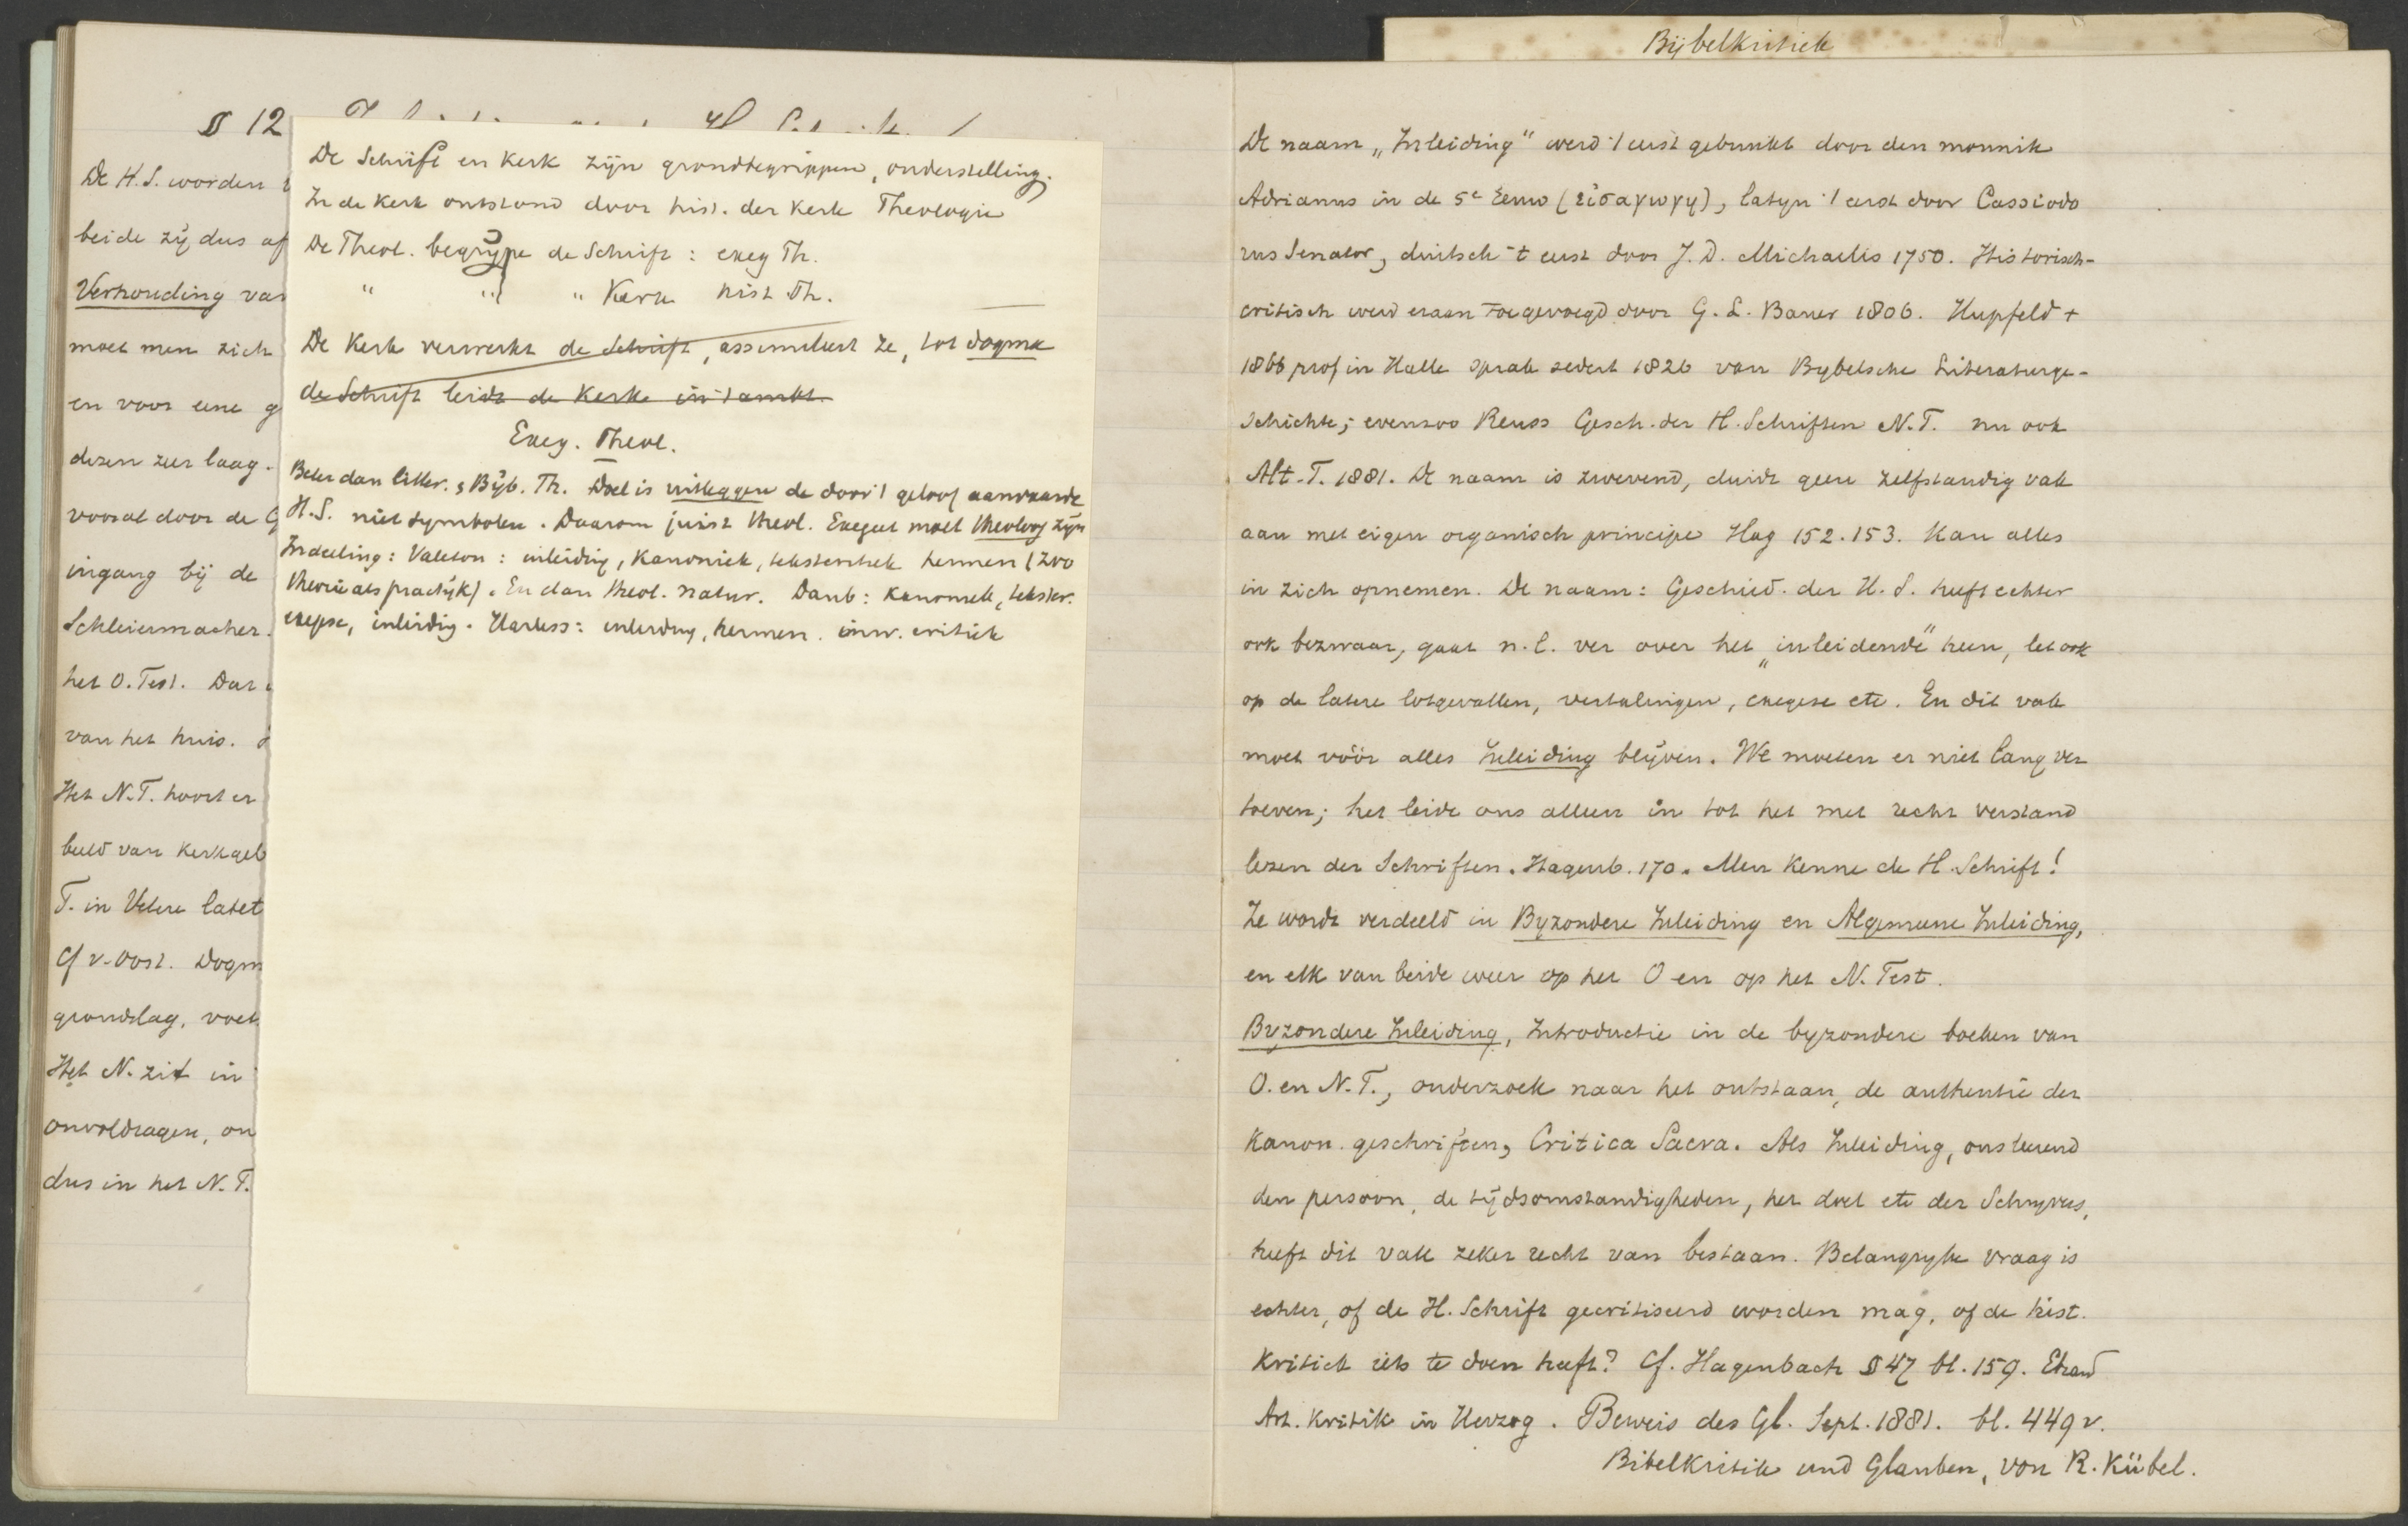 § 12
De H.S. worden
beide zij dus af
Verhouding van
moet men zich
en voor eene g
dezen zeer laag.
vooral door de G
ingang bij de
Schleiermacher.
het O. Test. Dat
van het huis.
Het N.T. hoort er
beeld van kerkgeb
T. in Vetere latet
Cf v. Oost. Dogm
grondslag, voet
Het N. zit in
onvoldragen, on
dus in het N.T.
De Schrift en Kerk zijn grondbegrippen, onderstelling.
In de Kerk ontstond door hist. der Kerk Theologie
De Theol. begrijpe de Schrift : exeg Th.
" " " Kerk hist Th.
De Kerk verwerkt de Schrift, assimileert ze, tot dogma
de Schrift leidt de Kerk in 't ambt.
Exeg. Theol.
Beter dan litter. & Bijb. Th. Doel is uitleggen de door 't geloof aanvaarde
H.S. niet symbolen. Daarom juist theol. Exegeet moet theoloog zijn
Indeeling: Valeton : inleiding, Kanoniek, tekstcritiek hermen (zoo
theorie als practijk). En dan theol. natur. Daub: Kanoniek, tekstcr.
exegese, inleidig. Harless: inleiding, hermen. inw. critiek
Bijbelkritiek
De naam „Inleiding" werd 't eerst gebruikt door den monnik
Adrianus in de 5e Eeuw (εἰσαγωγη), latijn 't eerst door Cassiodo
rus Senator, duitsch 't eerst door J. D. Michaelis 1750. Historisch-
critisch werd eraan toegevoegd door G. L. Bauer 1806. Hupfeld +
1866 prof in Halle sprak sedert 1826 van Bybelsche Literaturge-
schichte; evenzoo Reuss Gesch. der H. Schriften N.T. nu ook
Alt. T. 1881. De naam is zwevend, duidt geen zelfstandig vak
aan met eigen organisch principe Hag 152. 153. Kan alles
in zich opnemen. De naam: Geschied. der H. S. heeft echter
ook bezwaar, gaat n.l. ver over het „inleidende" heen, let ook
op de latere lotgevallen, vertalingen, exegese etc. En dit vak
moet vóór alles Inleiding blijven. We moeten er niet lang ver
toeven; het leide ons alleen in tot het met recht verstand
lezen der Schriften. Hagenb. 170. Men kenne de H. Schrift!
Ze wordt verdeeld in Byzondere Inleiding en Algemeene Inleiding,
en elk van beide weer op het O en op het N. Test.
Byzondere Inleiding, Introductie in de byzondere boeken van
O. en N.T., onderzoek naar het ontstaan, de authentie der
Kanon. geschriften, Critica Sacra. Als Inleiding, ons leerend
den persoon, de tijdsomstandigheden, het doel etc der Schryvers,
heeft dit vak zeker recht van bestaan. Belangryke vraag is
echter, of de H. Schrift gecritiseerd worden mag, of de hist.
Kritiek iets te doen heeft? Cf. Hagenbach § 47 bl. 159. Ebrard
Art. Kritik in Herzog. Beweis des Gl. Sept. 1881. bl. 449 v.
Bibelkritik und Glauben, von R. Kübel.